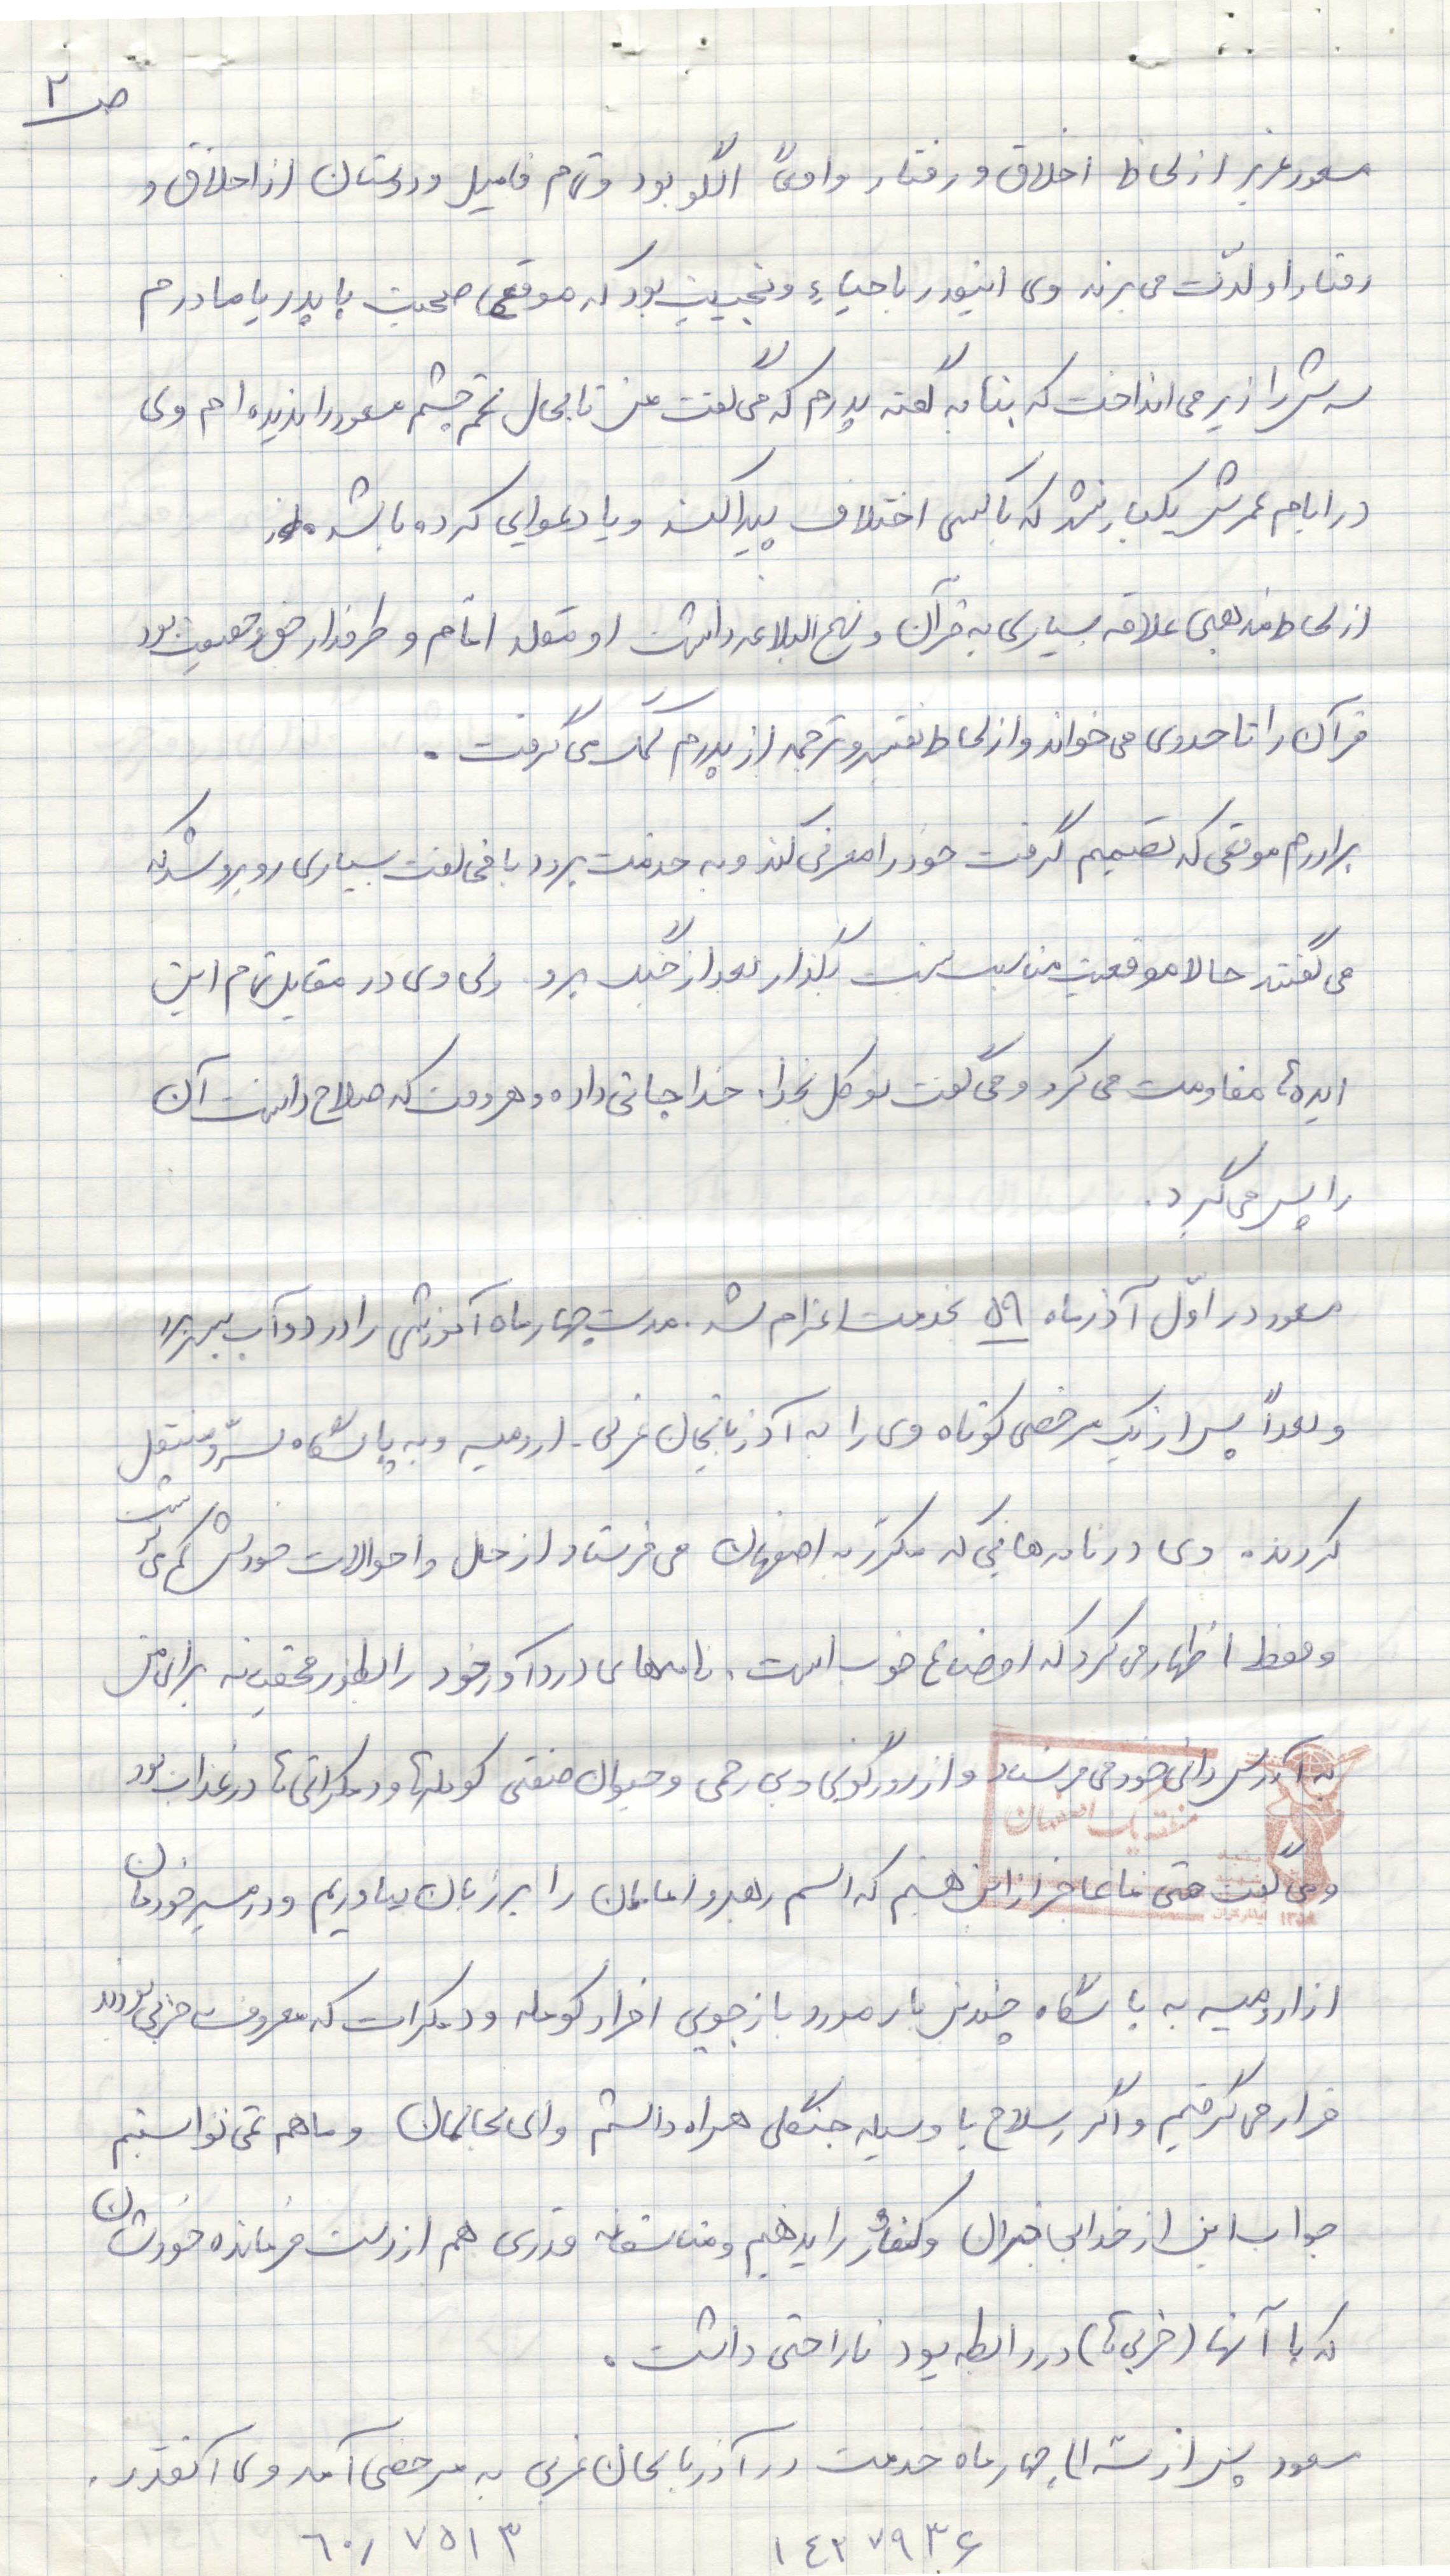 ص ۲
مسعود عزیز از لحاظ اخلاق و رفتار واقعاً الگو بود و تمام فامیل و دوستان از اخلاق و
رفتار او لذّت می بردند وی اینقدر با حیاء و نجیب بود که موقع صحبت با پدر یا مادرم
سرش را زیر می انداخت که بنا به گفته پدرم که می گفت من تا بحال تخم چشم مسعود را ندیده ام وی
در ایام عمرش یکبار نشد که با کسی اختلاف پیدا کند و یا دعوایی کرده باشد.
از لحاظ مذهبی علاقه بسیاری به قرآن و نهج البلاغه داشت او مقلد امام و طرفدار حق و حقیقت بود
قرآن را تا حدودی می خواند و از لحاظ تفسیر و ترجمه از پدرم کمک می گرفت.
برادرم موقعی که تصمیم گرفت خود را معرفی کند و به خدمت برود با مخالفت بسیاری روبرو شد که
می گفتند حالا موقعیت مناسب نیست بگذار بعد از جنگ برو. ولی وی در مقابل تمام این
ایده ها مقاومت می کرد و می گفت توکل بخدا. خدا جانی داده و هر وقت که صلاح دانست آن
را پس می گیرد.
مسعود در اوّل آذرماه ۵۹ بخدمت اعزام شد. مدت چهار ماه آموزشی را در دوآب بسر برد
و بعداً پس از یک مرخصی کوتاه وی را به آذربایجان غربی - ارومیه و به پاسگاه سرّو منتقل
کردند. وی در نامه هایی که مکرّر به اصفهان می فرستاد از حال و احوالات خودش کم می نوشت
و فقط اظهار می کرد که اوضاع خوب است. نامه های دردآور خود را بطور مخفیانه برای من
به آدرس دائی خود می فرستاد و از زورگوئی و بی رحمی و حیوان صفتی کومله ها و دمکراتی ها در عذاب بود
و می گفت حتی ما عاجز از این هستیم که اسم رهبر و اماممان را بر زبان بیاوریم و در مسیر خودمان
از ارومیه به پاسگاه چندین بار مورد بازجویی افراد کومله و دمکرات که معروف به حزبی بودند
قرار می گرفتیم و اگر سلاح یا وسیله جنگی همراه داشتیم وای بحالمان و ما هم نمی توانستیم
جواب این از خدا بی خبران و کفار را بدهیم و متاسفانه قدری هم از دست فرمانده خودشان
که با آنها (حزبی ها) در رابطه بود ناراحتی داشت.
مسعود پس از سه الی چهار ماه خدمت در آذربایجان غربی به مرخصی آمد وی آنقدر
۱۴۳۷۹۳۶ ۶۰/۷۵۱۳